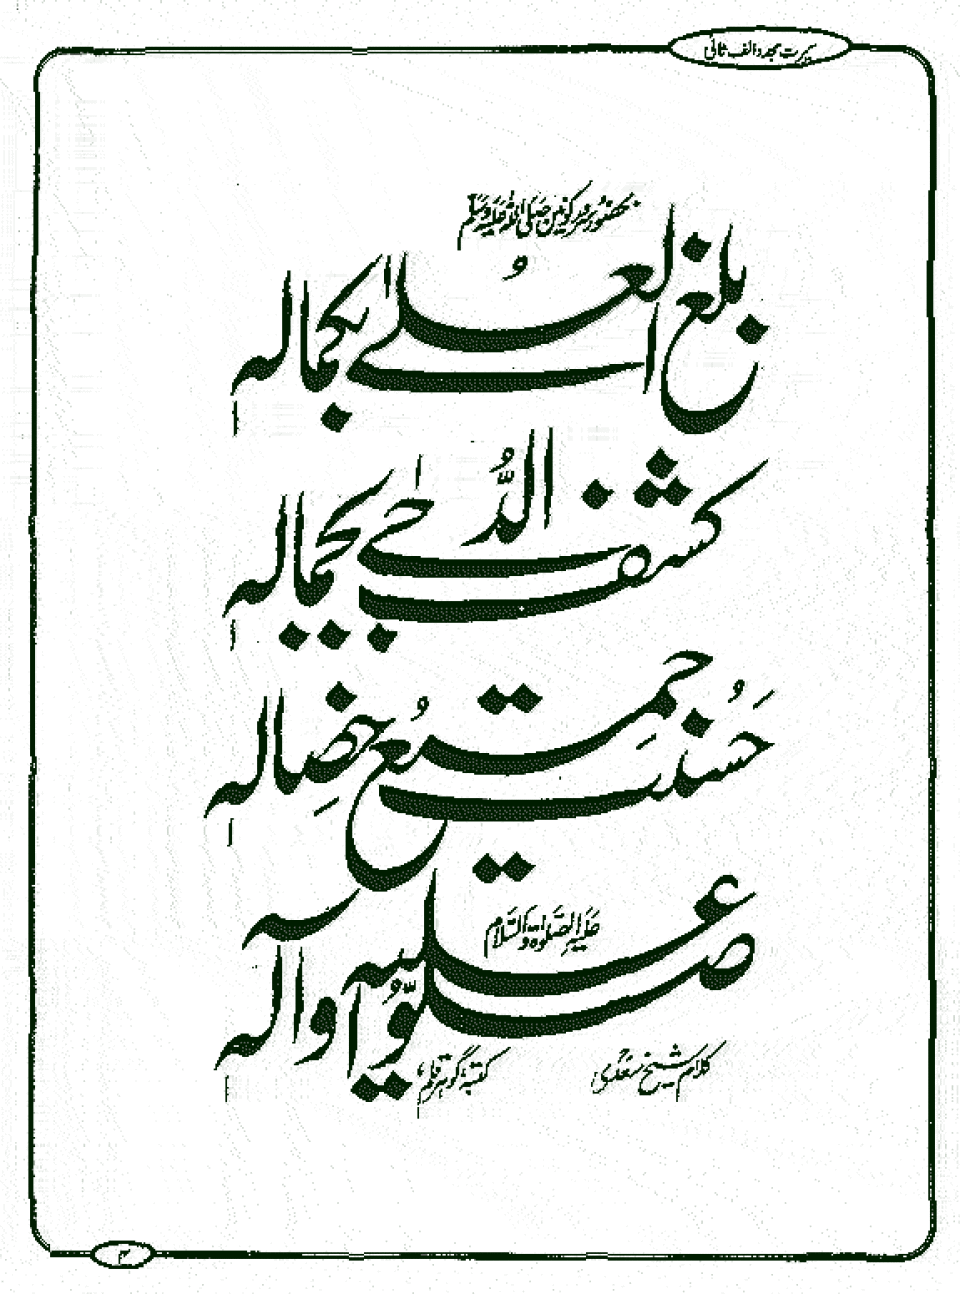 سیرت مجدد الف ثانی
بحضور سرور کونین صلی اللہ علیہ وسلم
بلغ العلے بکمالہ
کشف الدجے بجمالہ
حسنت جمیع خصالہ
صلوا علیہ وآلہ
علیہ الصلوٰة والسلام
کلام شیخ سعدی
کتبہ گوہر قلم
۳